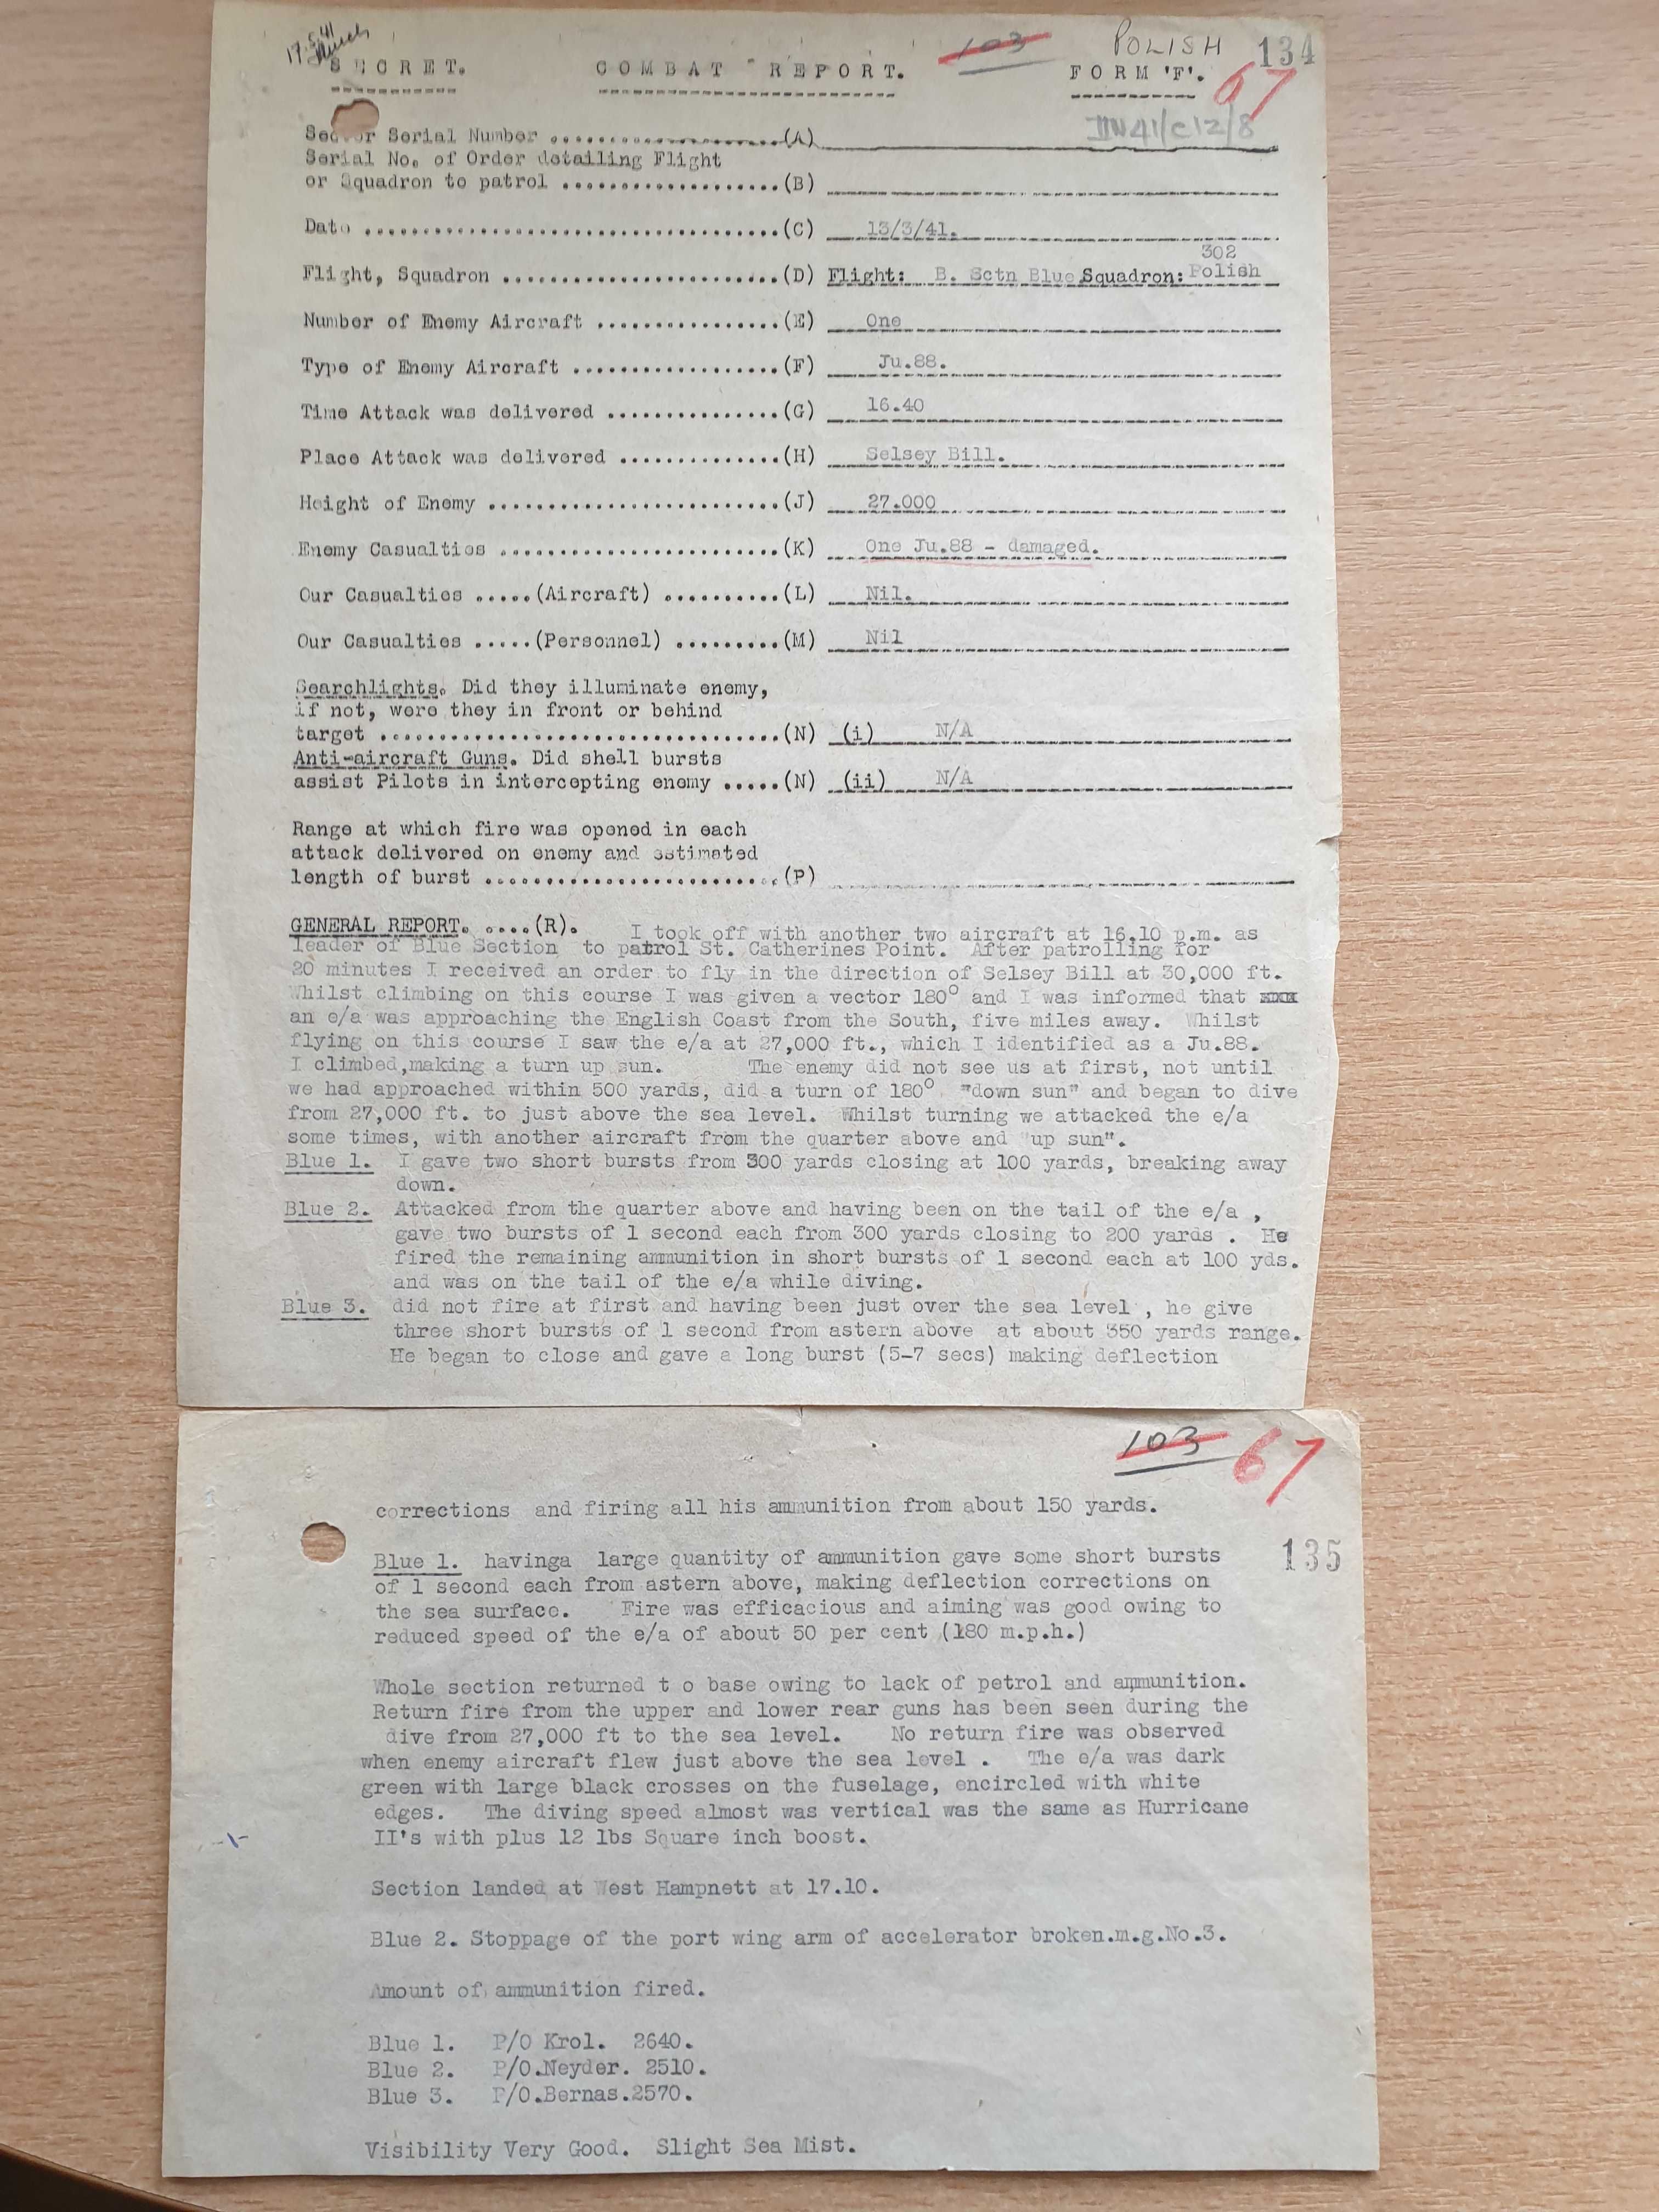 17.5.41
103
POLISH 134
SECRET. COMBAT REPORT. FORM 'F'.
67
IIW41/C12/8
Sector Serial Number ........................(A)
Serial No. of Order detailing Flight
or Squadron to patrol ....................(B)
Date ......................................(C) 13/3/41.
302
Flight, Squadron .........................(D) Flight: B. Sctn Blue Squadron: Polish
Number of Enemy Aircraft .................(E) One
Type of Enemy Aircraft ...................(F) Ju.88.
Time Attack was delivered ................(G) 16.40
Place Attack was delivered ...............(H) Selsey Bill.
Height of Enemy ..........................(J) 27.000
Enemy Casualties .........................(K) One Ju.88 - damaged.
Our Casualties .....(Aircraft) ...........(L) Nil.
Our Casualties .....(Personnel) ..........(M) Nil
Searchlights. Did they illuminate enemy,
if not, were they in front or behind
target ....................................(N) (i) N/A
Anti-aircraft Guns. Did shell bursts
assist Pilots in intercepting enemy .....(N) (ii) N/A
Range at which fire was opened in each
attack delivered on enemy and estimated
length of burst ...........................(P)
GENERAL REPORT. ....(R). I took off with another two aircraft at 16.10 p.m. as
leader of Blue Section to patrol St. Catherines Point. After patrolling for
20 minutes I received an order to fly in the direction of Selsey Bill at 30,000 ft.
Whilst climbing on this course I was given a vector 180° and I was informed that
an e/a was approaching the English Coast from the South, five miles away. Whilst
flying on this course I saw the e/a at 27,000 ft., which I identified as a Ju.88.
I climbed,making a turn up sun. The enemy did not see us at first, not until
we had approached within 500 yards, did a turn of 180° "down sun" and began to dive
from 27,000 ft. to just above the sea level. Whilst turning we attacked the e/a
some times, with another aircraft from the quarter above and "up sun".
Blue 1. I gave two short bursts from 300 yards closing at 100 yards, breaking away
down.
Blue 2. Attacked from the quarter above and having been on the tail of the e/a ,
gave two bursts of 1 second each from 300 yards closing to 200 yards . He
fired the remaining ammunition in short bursts of 1 second each at 100 yds.
and was on the tail of the e/a while diving.
Blue 3. did not fire at first and having been just over the sea level , he give
three short bursts of 1 second from astern above at about 350 yards range.
He began to close and gave a long burst (5-7 secs) making deflection
103 67
corrections and firing all his ammunition from about 150 yards.
135
Blue 1. havinga large quantity of ammunition gave some short bursts
of 1 second each from astern above, making deflection corrections on
the sea surface. Fire was efficacious and aiming was good owing to
reduced speed of the e/a of about 50 per cent (180 m.p.h.)
Whole section returned t o base owing to lack of petrol and ammunition.
Return fire from the upper and lower rear guns has been seen during the
dive from 27,000 ft to the sea level. No return fire was observed
when enemy aircraft flew just above the sea level . The e/a was dark
green with large black crosses on the fuselage, encircled with white
edges. The diving speed almost was vertical was the same as Hurricane
II's with plus 12 lbs Square inch boost.
Section landed at West Hampnett at 17.10.
Blue 2. Stoppage of the port wing arm of accelerator broken.m.g.No.3.
Amount of ammunition fired.
Blue 1. P/O Krol. 2640.
Blue 2. P/O.Neyder. 2510.
Blue 3. P/O.Bernas.2570.
Visibility Very Good. Slight Sea Mist.